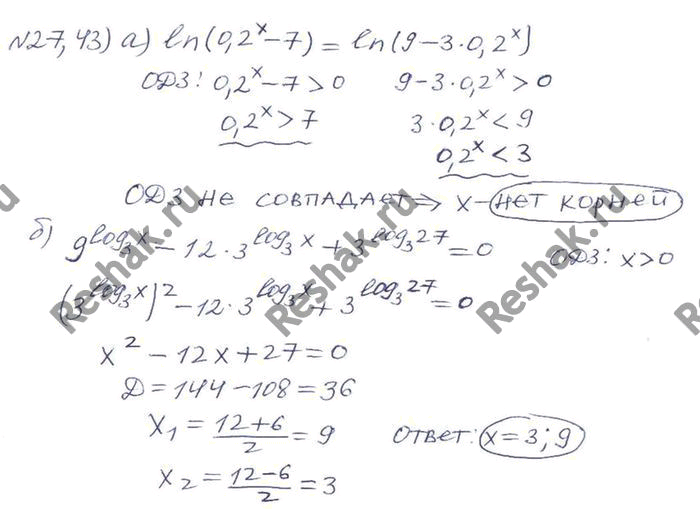 N27,43) а) ln(0,2^x-7) = ln(9-3·0,2^x)
ОДЗ: 0,2^x-7>0 9-3·0,2^x>0
0,2^x>7 3·0,2^x<9
0,2^x<3
ОДЗ не совпадает ⇒ x-нет корней
б) 9^log₃x - 12·3^log₃x + 3^log₃27 = 0 ОДЗ: x>0
(3^log₃x)² - 12·3^log₃x + 3^log₃27 = 0
x² - 12x + 27 = 0
Д = 144 - 108 = 36
x₁ = (12+6)/2 = 9
Ответ: x=3; 9
x₂ = (12-6)/2 = 3
Reshak.ru
Reshak.ru
Reshak.ru